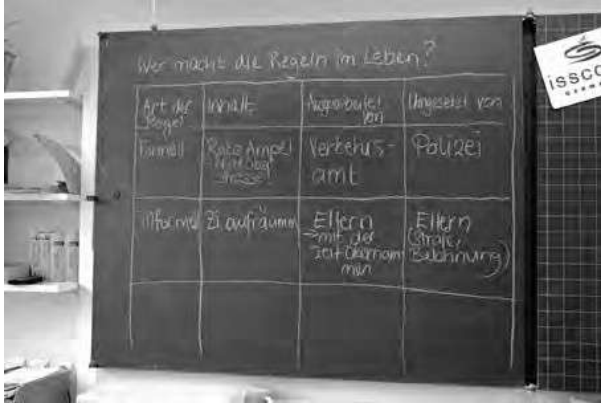 Wer macht die Regeln im Leben?
Art der Regel
Inhalt
Ausgearbeitet von
Umgesetzt von
formell
Rote Ampel
Verkehrs-
amt
Polizei
informell
Zi aufräumen
Eltern
mit der
Zeit
Eltern
(Strafe,
Belohnung)
issco